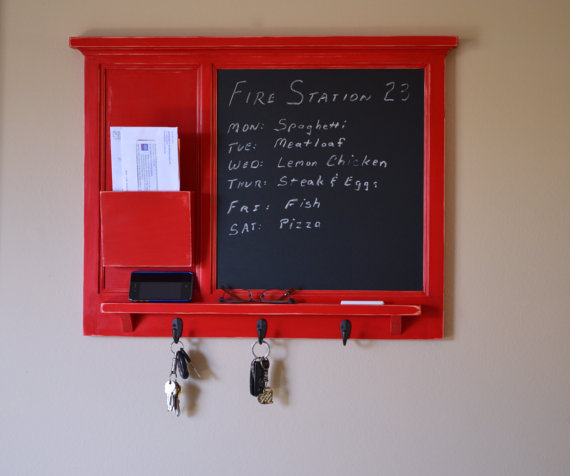 Fire Station 23
Mon: Spaghetti
Tue: Meatloaf
Wed: Lemon Chicken
Thur: Steak & Eggs
Fri: Fish
Sat: Pizza